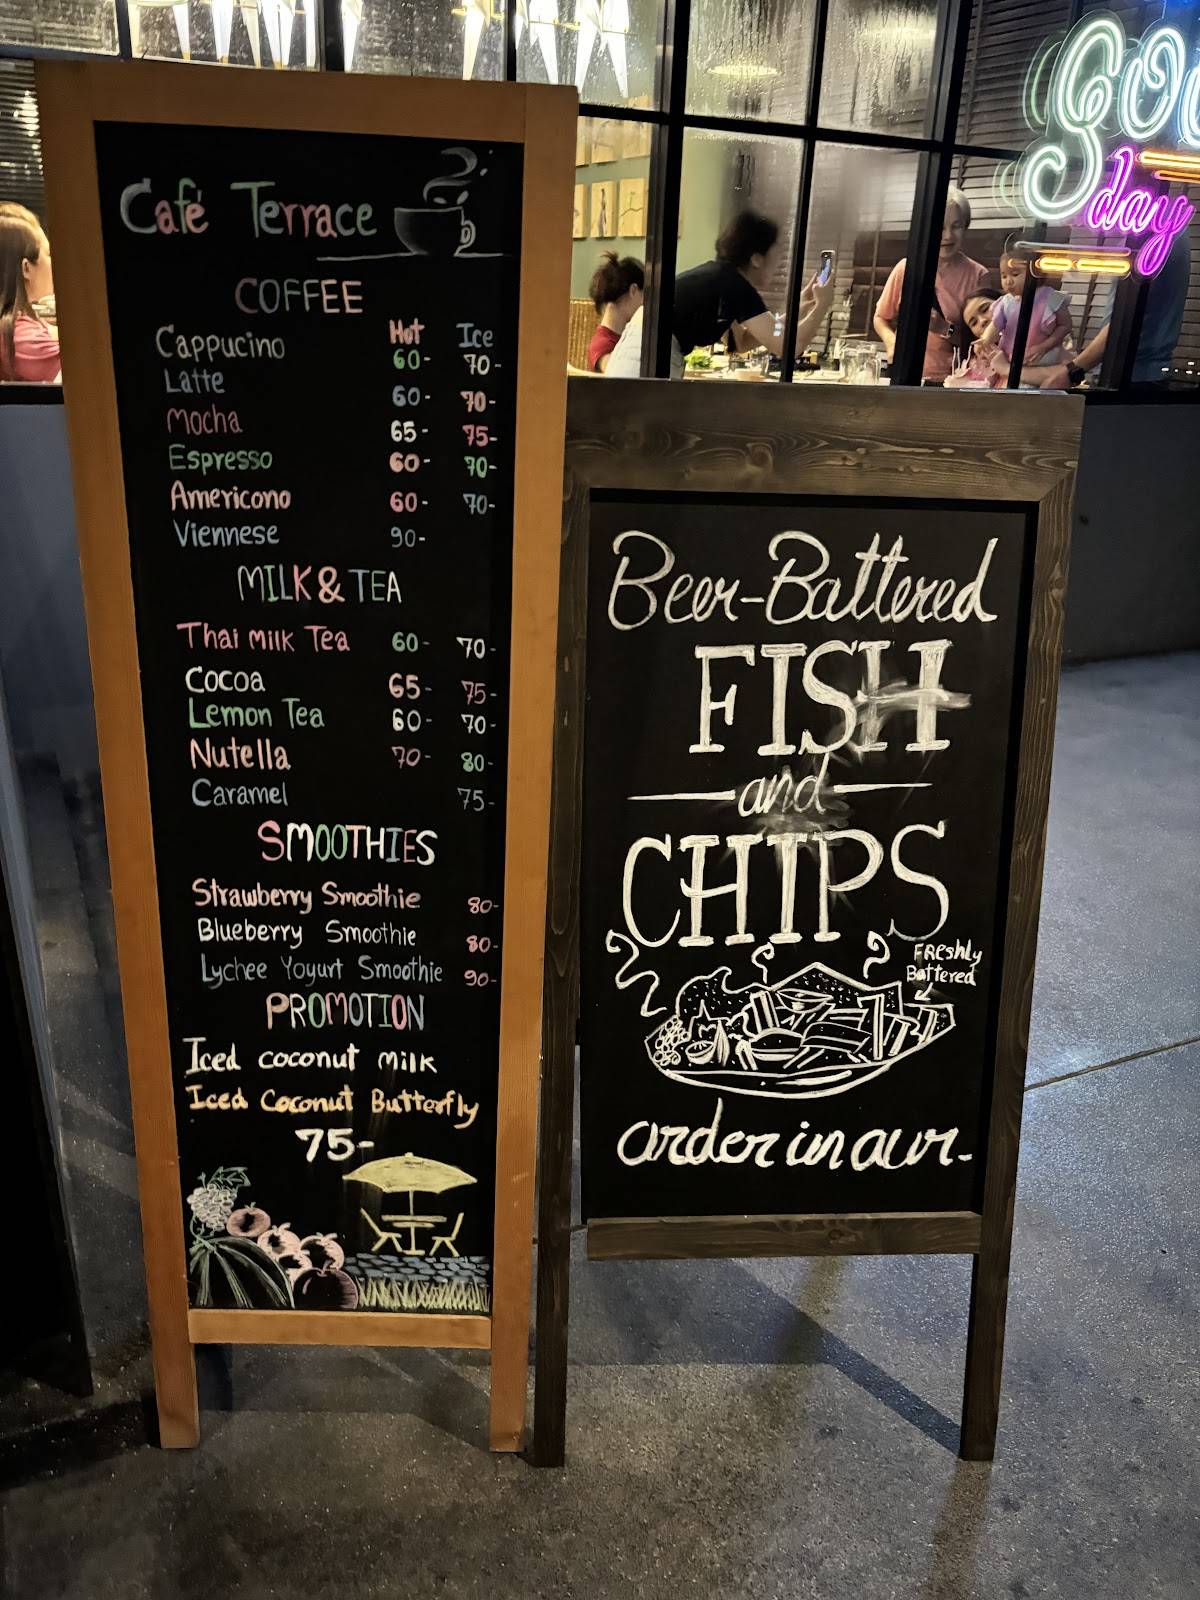 Café Terrace
COFFEE
Hot Ice
Cappucino 60- 70-
Latte 60- 70-
Mocha 65- 75-
Espresso 60- 70-
Americono 60- 70-
Viennese 90-
MILK & TEA
Thai Milk Tea 60- 70-
Cocoa 65- 75-
Lemon Tea 60- 70-
Nutella 70- 80-
Caramel 75-
SMOOTHIES
Strawberry Smoothie 80-
Blueberry Smoothie 80-
Lychee Yogurt Smoothie 90-
PROMOTION
Iced coconut milk
Iced Coconut Butterfly
75-
Beer-Battered
FISH
and
CHIPS
Freshly
Battered
order in our.
day